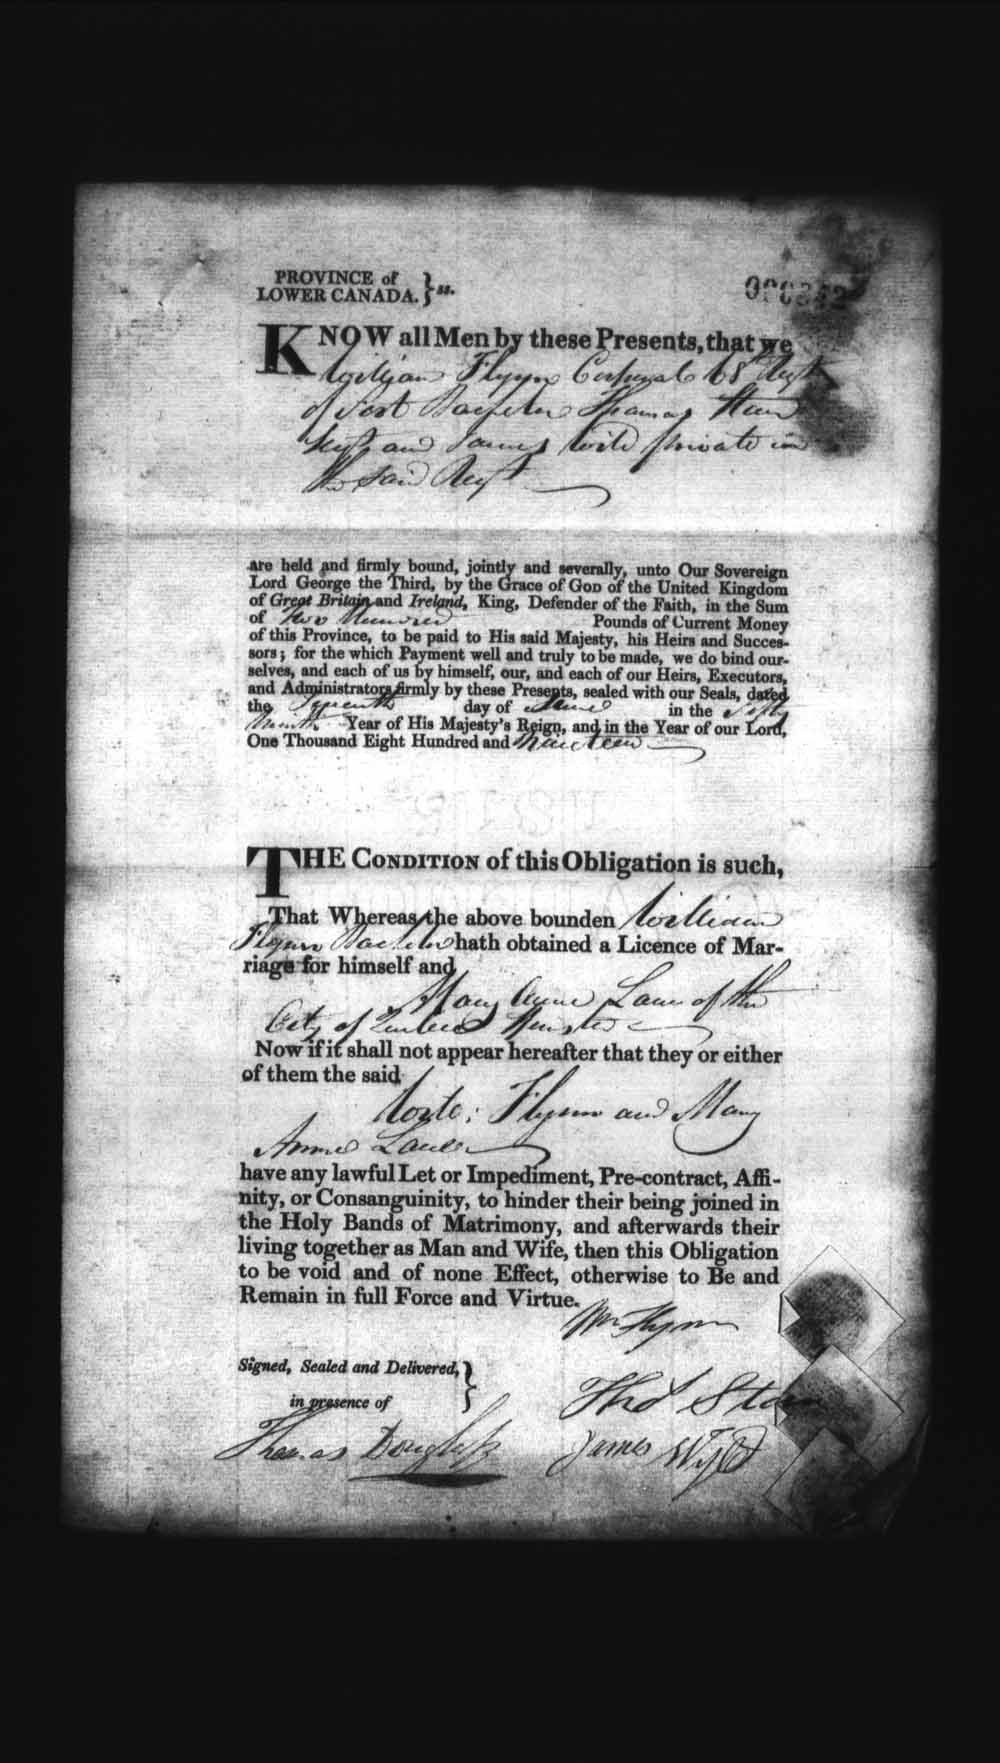 PROVINCE of
LOWER CANADA. } ss.
KNOW all Men by these Presents, that we
William Flynn Corporal 68 Regt
of Foot Bachelor Thomas
and James private in
the said Regt
are held and firmly bound, jointly and severally, unto Our Sovereign
Lord George the Third, by the Grace of GOD of the United Kingdom
of Great Britain and Ireland, King, Defender of the Faith, in the Sum
of Two Hundred Pounds of Current Money
of this Province, to be paid to His said Majesty, his Heirs and Succes-
sors; for the which Payment well and truly to be made, we do bind our-
selves, and each of us by himself, our, and each of our Heirs, Executors,
and Administrators firmly by these Presents, sealed with our Seals, dated
the day of June in the Fifty
Ninth Year of His Majesty's Reign, and in the Year of our Lord,
One Thousand Eight Hundred and Nineteen
THE CONDITION of this Obligation is such,
That Whereas the above bounden William
Flynn Bachelor hath obtained a Licence of Mar-
riage for himself and
Mary Anne of the
City of Quebec Spinster
Now if it shall not appear hereafter that they or either
of them the said
Flynn and Mary
Anne
have any lawful Let or Impediment, Pre-contract, Affi-
nity, or Consanguinity, to hinder their being joined in
the Holy Bands of Matrimony, and afterwards their
living together as Man and Wife, then this Obligation
to be void and of none Effect, otherwise to Be and
Remain in full Force and Virtue.
Wm Flynn
Signed, Sealed and Delivered, }
in presence of
Thos
Thomas Douglass
James Wyld